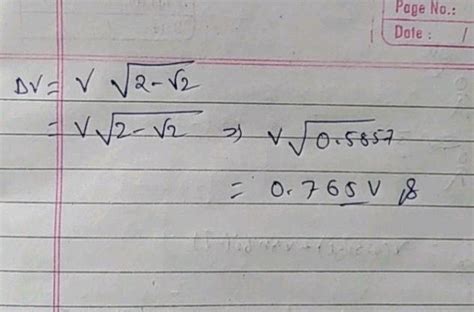 Page No.:
Date : /
ΔV = V √2-√2
= V√2-√2 ⇒ V√0.5857
= 0.765V &